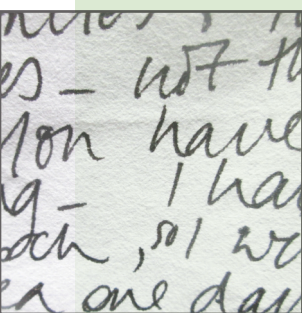 es - not th
ion have
ng - I ha
och, so I wo
ea one day